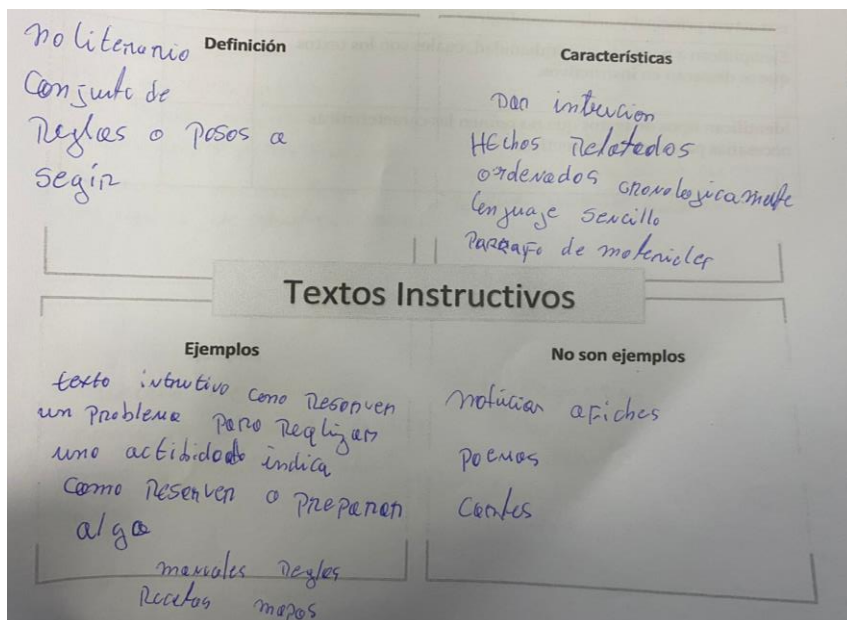 Definición
no literario
Conjunto de
Reglas o Pasos a
segir
Características
Dan intrucion
HEchos Relatados
ordenados cronologicamente
lenguaje sencillo
Parrafo de
Textos Instructivos
Ejemplos
texto intrutivo como Resorver
un problema para Reqlizar
una actibidad indica
como Reserver o preparar
algo
manuales Reglas
Recetas mapas
No son ejemplos
noticias aFiches
poemas
Cuentos